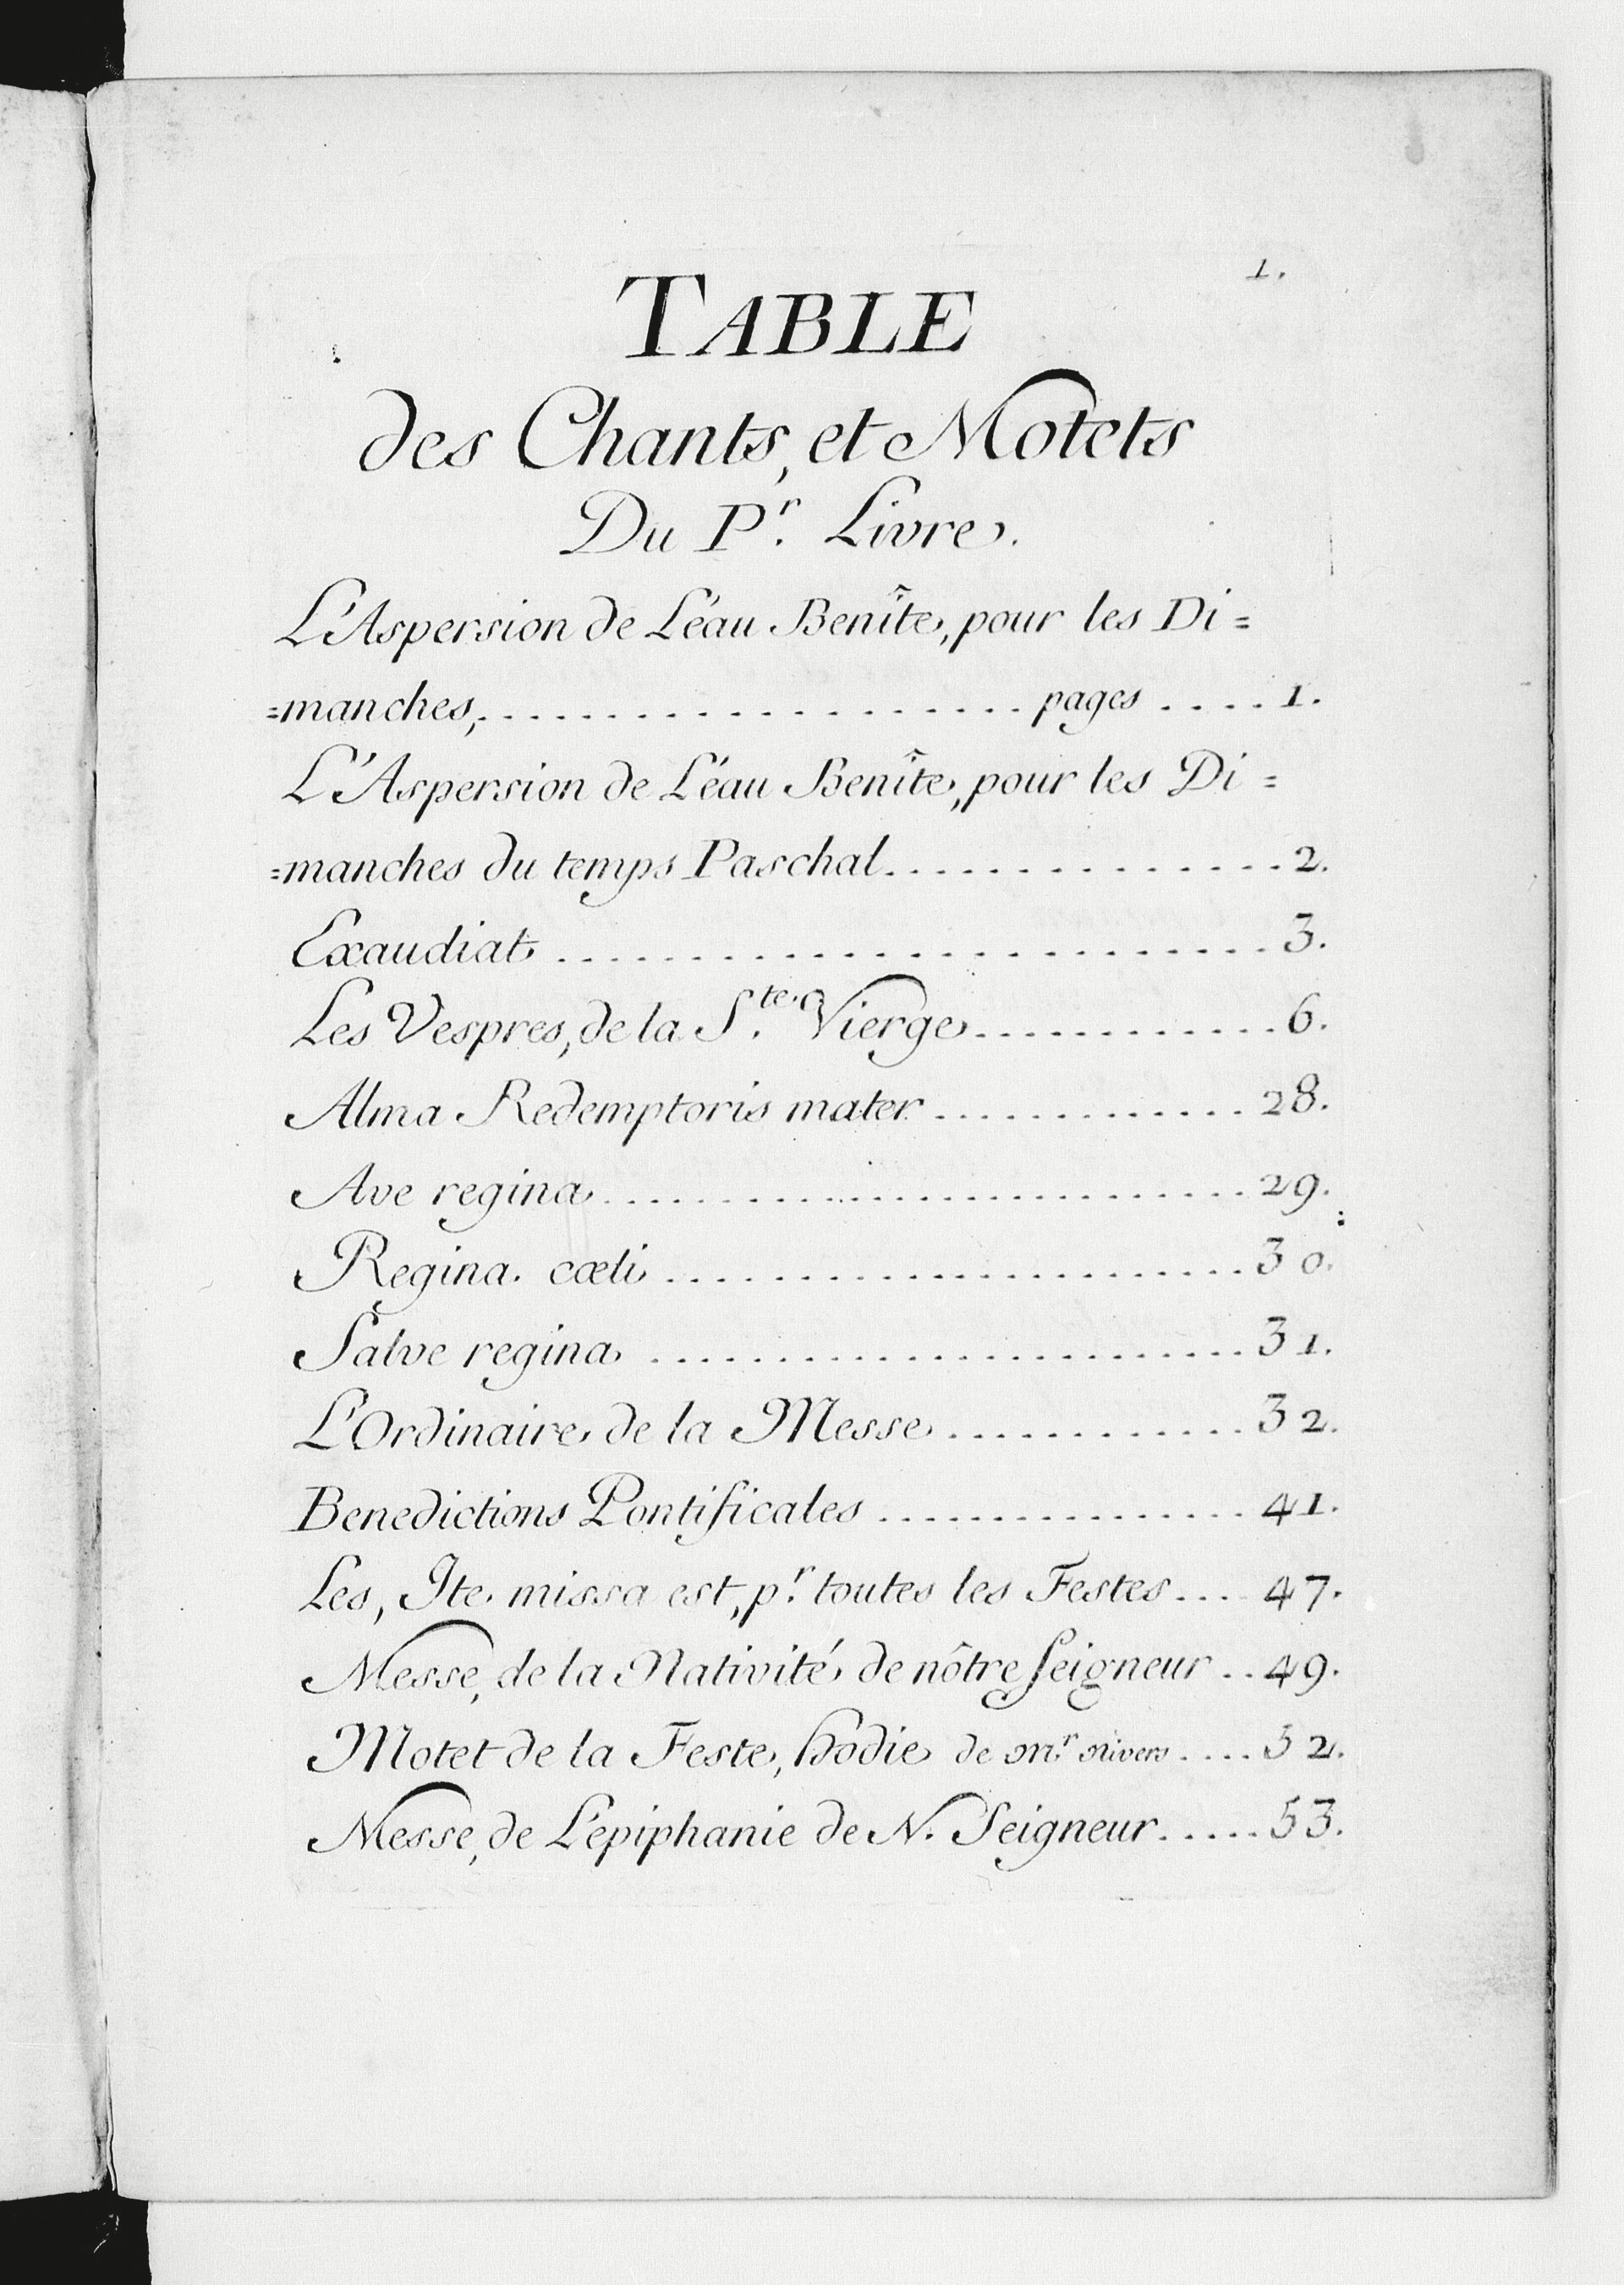 1.
TABLE
des Chants, et Motets
Du P.r Livre.
L'Aspersion de L'éau Benîte, pour les Di=
=manches, . . . . . . . . . . . . . . . . . . pages . . . . 1.
L'Aspersion de L'éau Benîte, pour les Di=
=manches du temps Paschal . . . . . . . . . . . . . 2.
Exaudiat . . . . . . . . . . . . . . . . . . . . . . . 3.
Les Vespres, de la S.te Vierge . . . . . . . . . . . 6.
Alma Redemptoris mater . . . . . . . . . . . . 28.
Ave regina . . . . . . . . . . . . . . . . . . . . . . 29.
Regina. cœli . . . . . . . . . . . . . . . . . . . . 30.
Salve regina . . . . . . . . . . . . . . . . . . . . 31.
L'Ordinaire de la Messe . . . . . . . . . . . . 32.
Benedictions Pontificales . . . . . . . . . . . . . . 41.
Les, Ite missa est, p.r toutes les Festes . . . . 47.
Messe, de la Nativité de nôtre seigneur . . 49.
Motet de la Feste, hodie de M.r Nivers . . . . 52.
Messe, de L'épiphanie de N. Seigneur . . . . . 53.